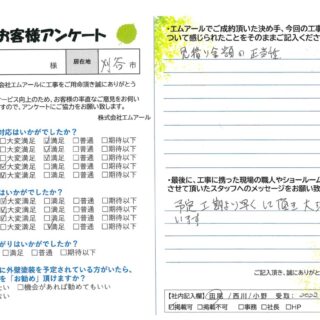 お客様アンケート
様
居住地
刈谷市
会社エムアールに工事をご用命頂き誠にありがとう
ービス向上のため、お客様の率直なご意見をお伺い
ますので、アンケートにご協力をお願い致します。
株式会社エムアール
対応はいかがでしたか？
□大変満足 ☑満足 □普通 □期待以下
□大変満足 ☑満足 □普通 □期待以下
□大変満足 ☑満足 □普通 □期待以下
□大変満足 ☑満足 □普通 □期待以下
□大変満足 ☑満足 □普通 □期待以下
がりはいかがでしたか？
満足 □普通 □期待以下
に外壁塗装を予定されている方がいたら、
を「お勧め」頂けますか？
たい □機会があれば勧めてもいい
ない
・エムアールでご成約頂いた決め手、今回の工事
ついて感じられたことをそのままご記入ください
見積り金額の正当性
・最後に、工事に携った現場の職人やショールーム
させて頂いたスタッフへのメッセージをお願い致
予定工期より早く
います
ご記入頂き、誠にありがと
【社内記入欄】田尾／西川／小野 受取：2022
☑掲載可 □掲載不可 □事務 □社長 □HP